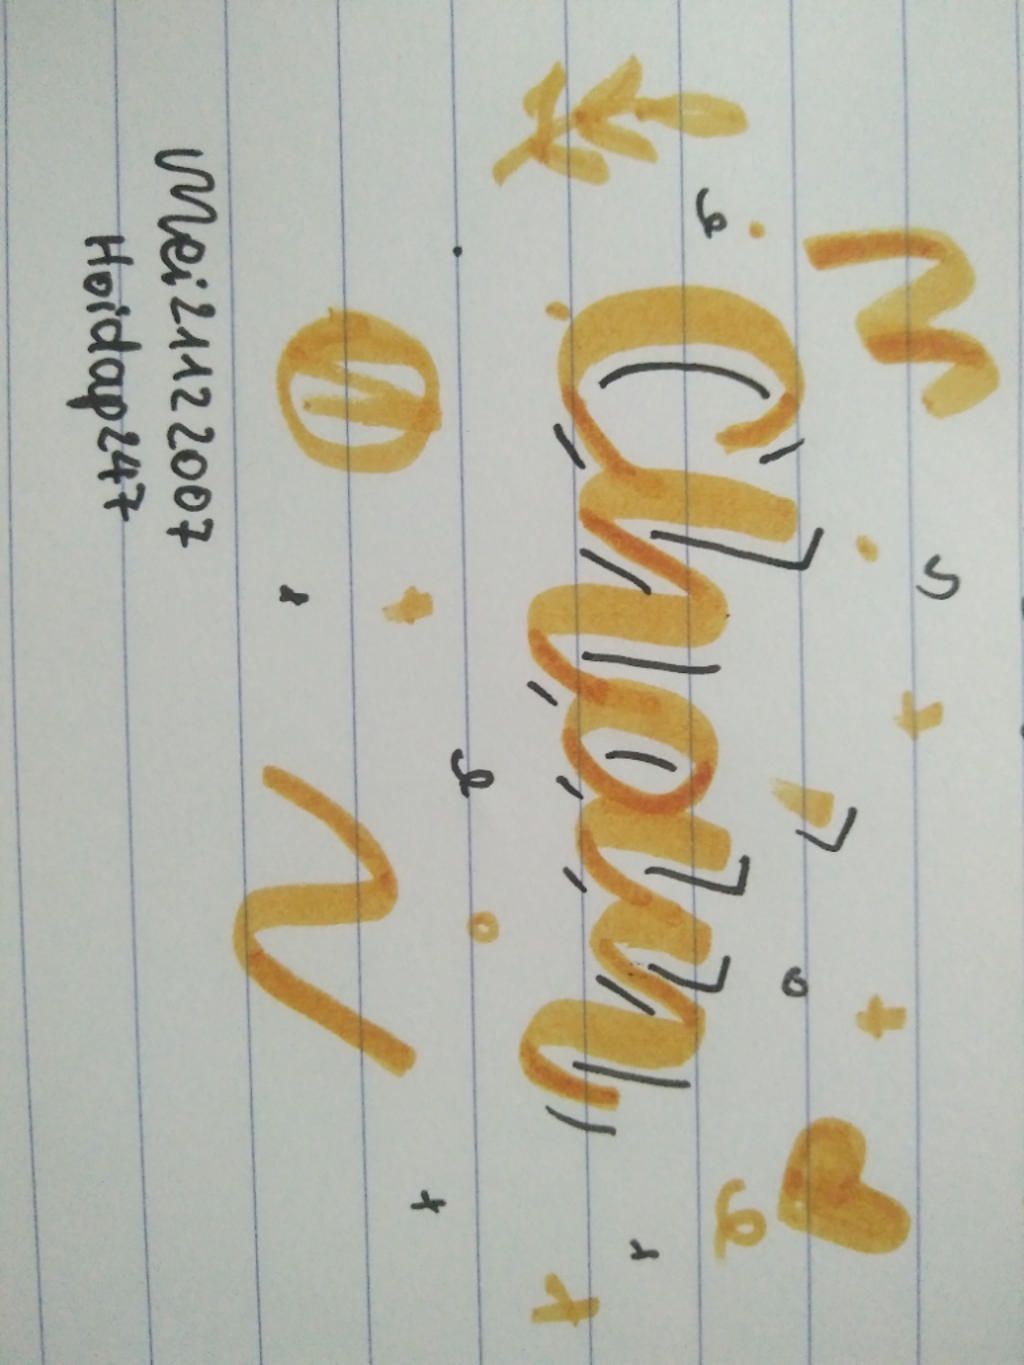 Chán
Mei21122007
Hoidap247